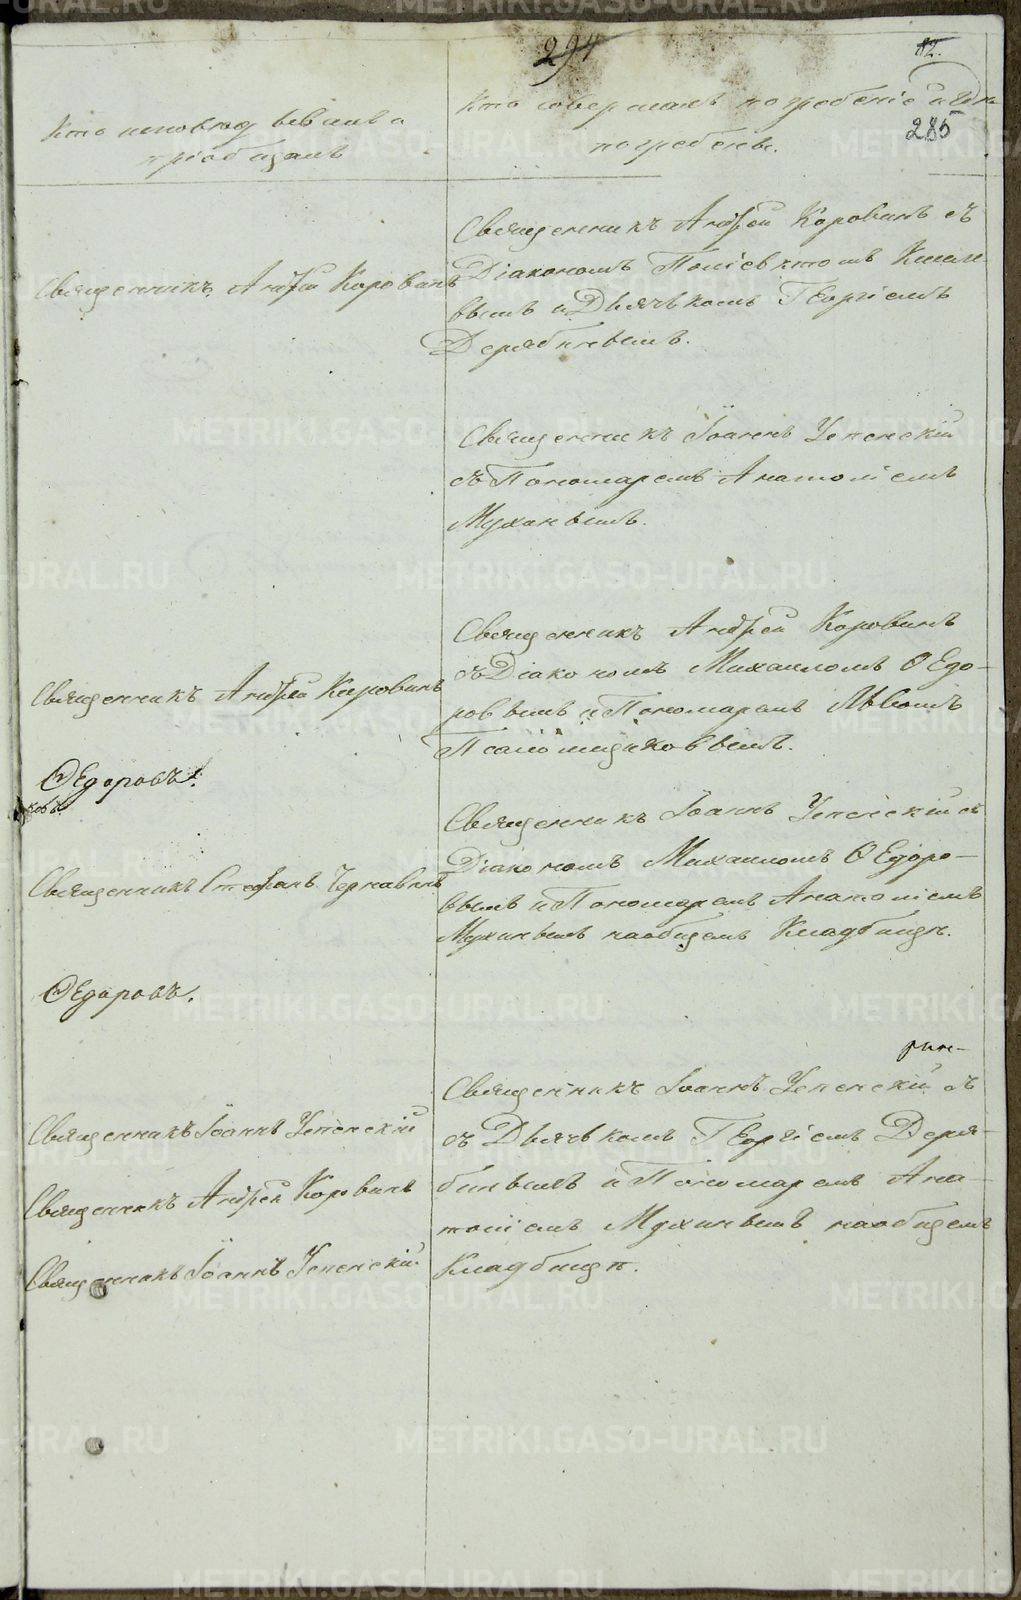 294
82.
285
Кто исповѣдывалъ и
пріобщалъ
Кто совершалъ погребеніе и гдѣ
погребены.
Священникъ Андрей Коровинъ
Священникъ Андрей Коровинъ съ
Діакономъ Поліевктомъ
вымъ и Дьячькомъ Георгіемъ
Дерябинымъ.
Священникъ Іоаннъ Успенскій
съ Пономаремъ Анатоліемъ
Мухинымъ.
Священникъ Андрей Коровинъ
Священникъ Андрей Коровинъ
съ Діакономъ Михаиломъ Ѳедо-
ровымъ и Пономаремъ Львомъ
Псаломщиковымъ.
Ѳедоровъ.
ковъ
Священникъ Стефанъ Чернавинъ
Священникъ Іоаннъ Успенскій съ
Діакономъ Михаиломъ Ѳедоро-
вымъ и Пономаремъ Анатоліемъ
Мухинымъ наобщемъ Кладбищѣ.
Ѳедоровъ.
Священникъ Іоаннъ Успенскій
Священникъ Андрей Коровинъ
Священникъ Іоаннъ Успенскій
Священникъ Іоаннъ Успенскій съ
съ Дьячькомъ Георгіемъ Деря-
бинымъ и Пономаремъ Ана-
толіемъ Мухинымъ наобщемъ
Кладбищѣ.
METRIKI.GASO-URAL.RU